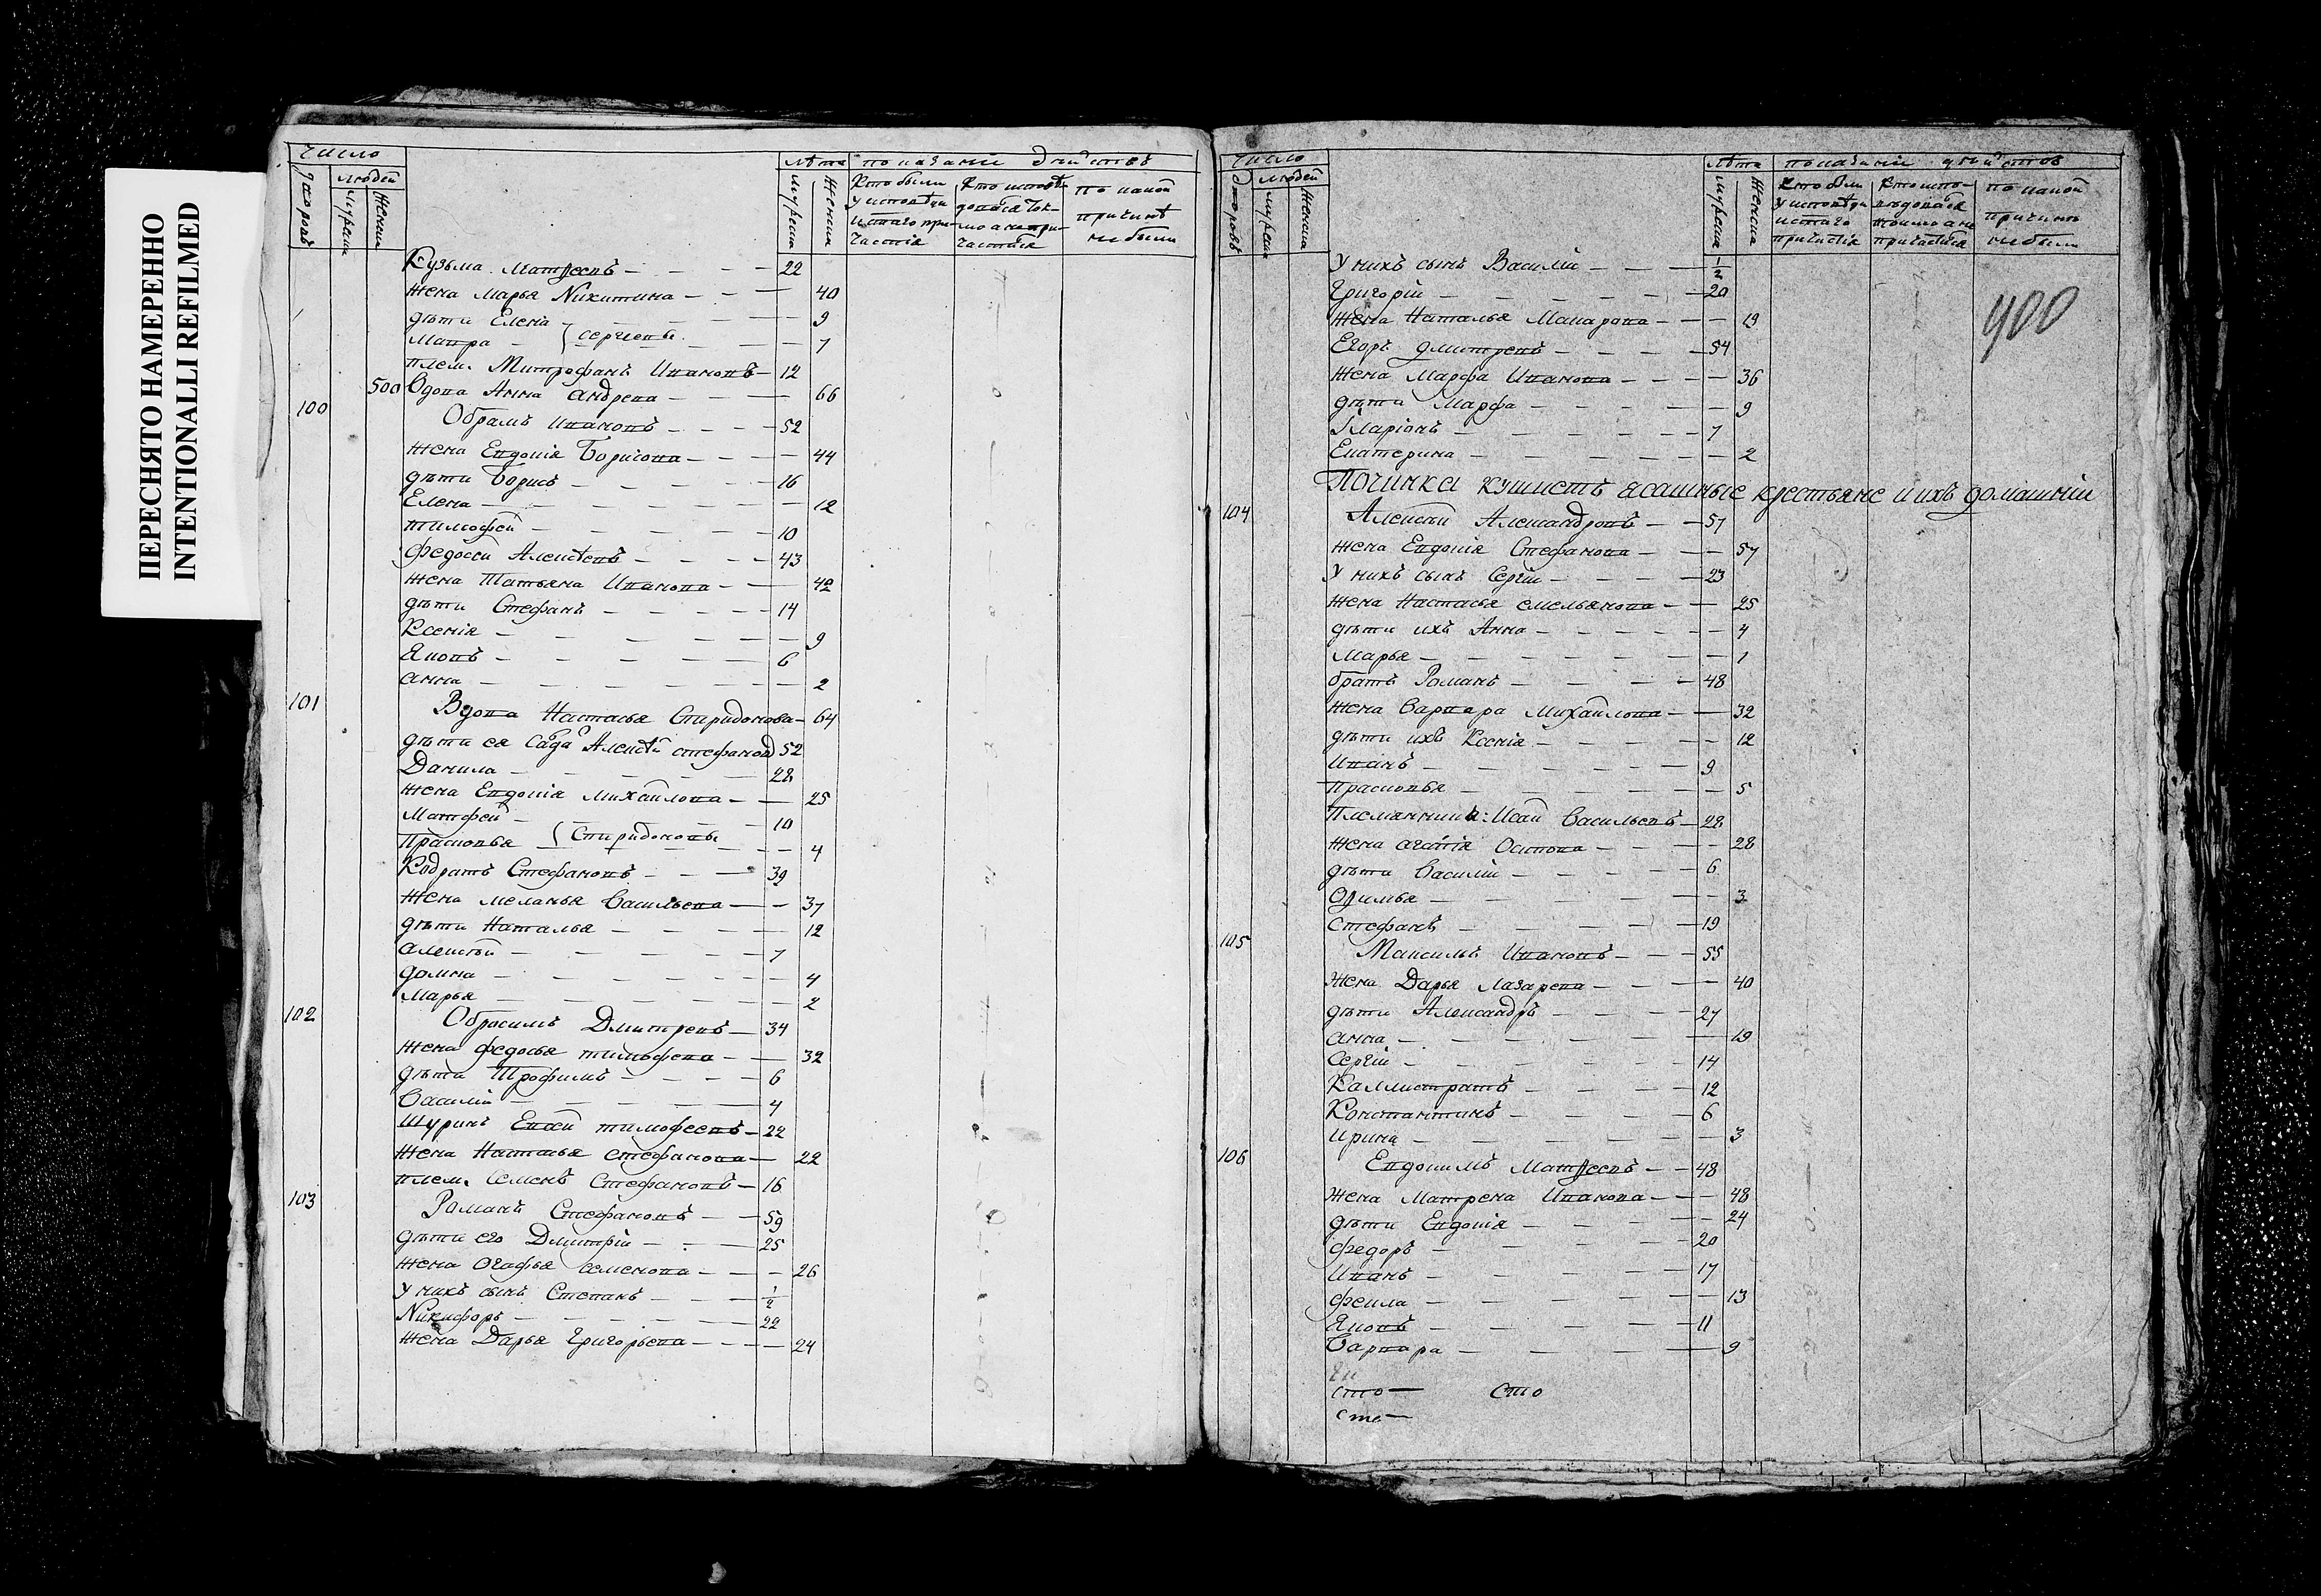 ПЕРЕСНЯТО НАМЕРЕННО
INTENTIONALLI REFILMED
число
людей
дворовъ
мужеска
женска
Лѣта
показанiи дѣйствъ
мужеска
женска
Кто были
у исповѣди
и стаго при-
частiя
Кто исповѣ-
дался
по какой
причинѣ
не были
Кузьма Матвеевъ 22
жена Марья Никитина 40
дѣти Елена 9
Мавра } Сергеевы 7
плем. Митрофанъ Ивановъ 12
500 Вдова Анна Андрева 66
100 Обрамъ Ивановъ 52
жена Евдокiя Борисова 44
дѣти Борисъ 16
Елена 12
тимофей 10
Федосей Алексѣевъ 43
жена Татьяна Иванова 42
дѣти Стефанъ 14
Ксенiя 9
Яковъ 6
анна 2
101 Вдова Настасья Спиридонова 64
дѣти ея Алексѣй стефановъ 52
Данила 28
жена Евдокiя Михайлова 25
Матфей 10
Прасковья } Спиридоновы 4
Кодратъ Стефановъ 39
жена Меланья Васильева 37
дѣти Наталья 12
алексѣй 7
домна 4
Марья 2
102 Обросимъ Дмитревъ 34
жена федосья тимофева 32
дѣти Трофимъ 6
Василiй 4
Шуринъ Евсей тимофеевъ 22
жена Наталья стефанова 22
плем. Семенъ Стефановъ 16
103 Романъ Стефановъ 59
дѣти его Дмитрiй 25
жена Огафья Семенова 26
У нихъ сынъ Степанъ 1/2
Никифоръ 22
жена Дарья Григорьева 24
число
людей
дворовъ
мужеска
женска
Лѣта
показанiи дѣйствъ
мужеска
женска
Кто были
у исповѣди
и стаго
причастiя
Кто испо-
вѣдался
токмо а не
причастился
по какой
причинѣ
не были
400
У нихъ сынъ Василiй 1/2
Григорiй 20
жена Наталья Макарова 19
Егоръ Дмитревъ 54
жена Марфа Иванова 36
дѣти Марфа 9
Iларiонъ 7
Екатерина 2
Починка кушкетъ ясашные крестьяне и ихъ домашнiи
104 Алексѣй Александровъ 57
жена Евдокiя Стефанова 57
У нихъ сынъ Сергiй 23
жена Настасья емельянова 25
дѣти ихъ Анна 4
Марья 1
братъ Романъ 48
жена Варвара Михайлова 32
дѣти ихъ Ксенiя 12
Иванъ 9
Прасковья 5
Племянникъ: Исай Васильевъ 28
жена агапiя Осипова 28
дѣти Василiй 6
Окулина 3
стефанъ 19
105 Максимъ Ивановъ 55
жена Дарья Лазарева 40
дѣти Александръ 27
анна 19
Сергiй 14
Каллистратъ 12
Константинъ 6
ирина 3
106 Евдокимъ Матвеевъ 48
жена Матрена Иванова 48
дѣти Евдокiя 24
федоръ 20
Иванъ 17
фекла 13
Яковъ 11
Варвара 9
сто сто
сто